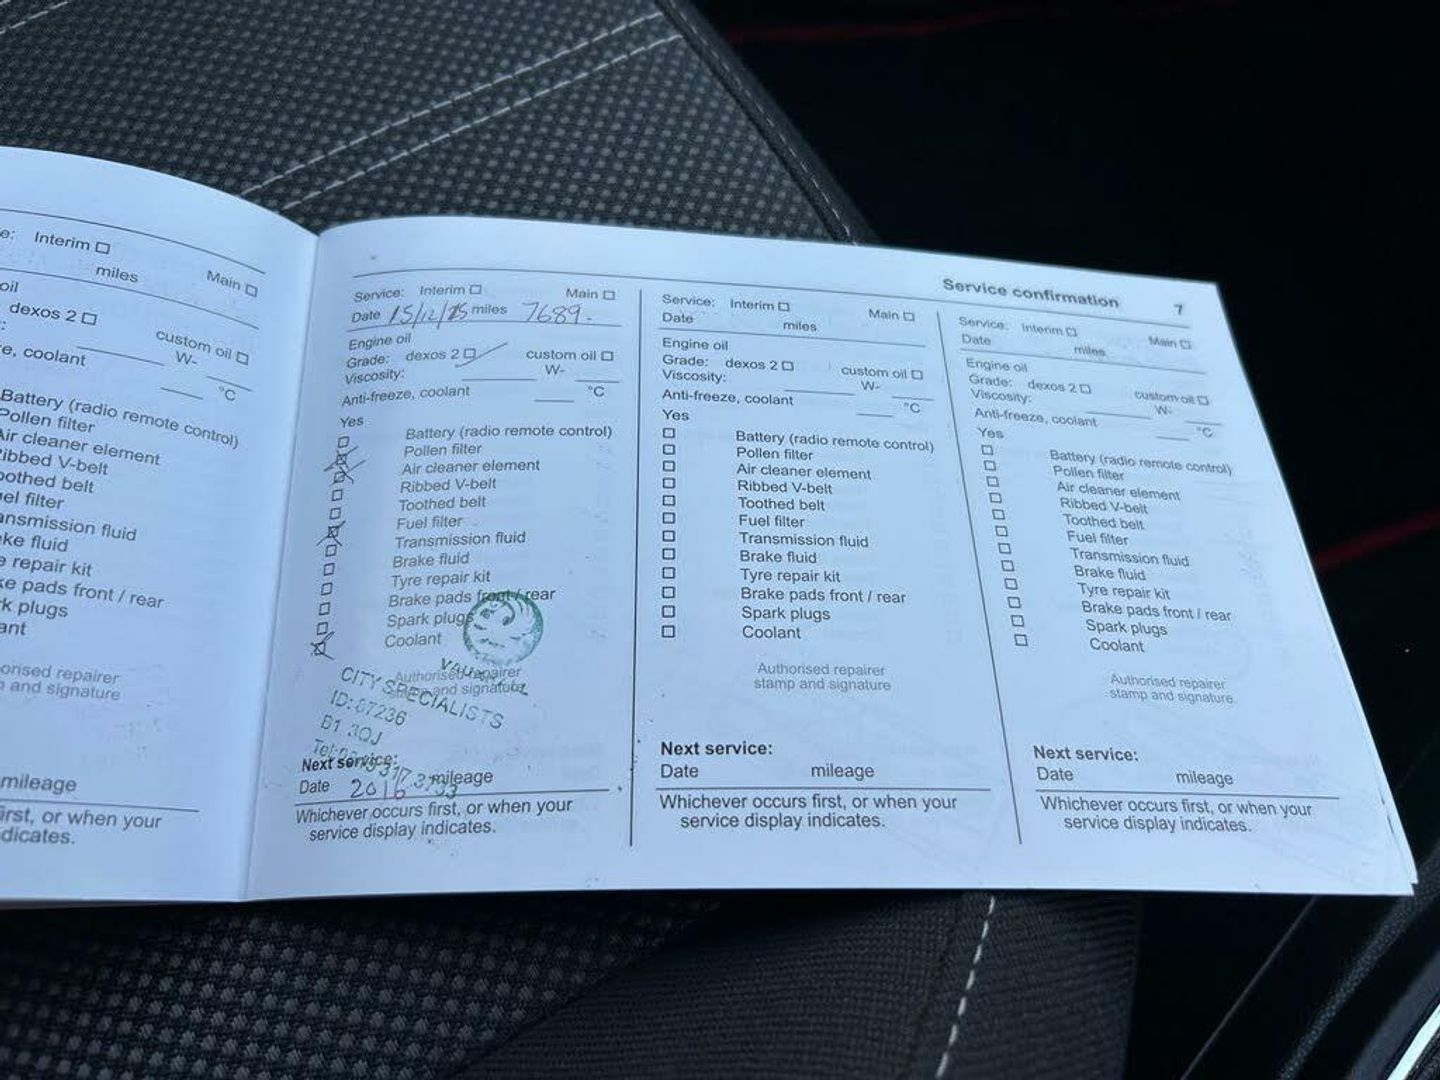 e: Interim
Main
miles
oil
dexos 2
custom oil
W-
e, coolant
°C
Battery (radio remote control)
Pollen filter
Air cleaner element
Ribbed V-belt
oothed belt
el filter
ansmission fluid
ke fluid
e repair kit
ke pads front / rear
rk plugs
ant
orised repairer
p and signature
mileage
irst, or when your
dicates.
Service: Interim
Main
Date 15/12/15 miles 7689.
Engine oil
Grade: dexos 2
custom oil
Viscosity:
W-
Anti-freeze, coolant
°C
Yes
Battery (radio remote control)
Pollen filter
Air cleaner element
Ribbed V-belt
Toothed belt
Fuel filter
Transmission fluid
Brake fluid
Tyre repair kit
Brake pads front / rear
Spark plugs
Coolant
Authorised repairer
stamp and signature
CITY SPECIALISTS
ID: 87236
B1 3QJ
Next service:
Date 2016 mileage
Whichever occurs first, or when your
service display indicates.
Service confirmation 7
Service: Interim
Main
Date
miles
Engine oil
Grade: dexos 2
custom oil
Viscosity:
W-
Anti-freeze, coolant
°C
Yes
Battery (radio remote control)
Pollen filter
Air cleaner element
Ribbed V-belt
Toothed belt
Fuel filter
Transmission fluid
Brake fluid
Tyre repair kit
Brake pads front / rear
Spark plugs
Coolant
Authorised repairer
stamp and signature
Next service:
Date mileage
Whichever occurs first, or when your
service display indicates.
Service: Interim
Main
Date
miles
Engine oil
Grade: dexos 2
custom oil
Viscosity:
W-
Anti-freeze, coolant
°C
Yes
Battery (radio remote control)
Pollen filter
Air cleaner element
Ribbed V-belt
Toothed belt
Fuel filter
Transmission fluid
Brake fluid
Tyre repair kit
Brake pads front / rear
Spark plugs
Coolant
Authorised repairer
stamp and signature
Next service:
Date mileage
Whichever occurs first, or when your
service display indicates.